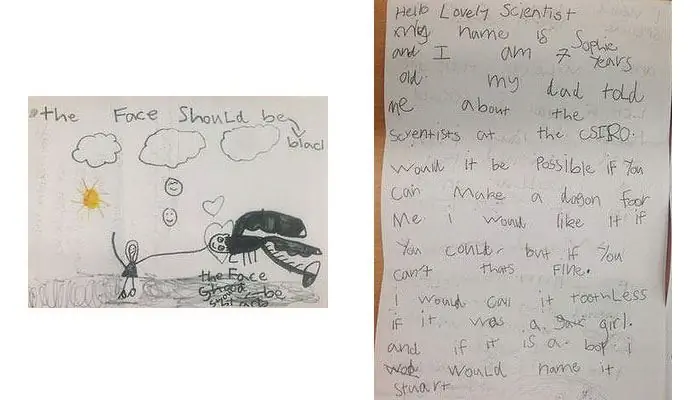 the Face Should be
blacl
the Face
be
Hello Lovely Scientist
my name is Sophie
and I am 7 Years
old. my dad told
me about the
scientists at the CSIRO.
Would it be Possible if You
can make a dagon foor
Me i would like it if
You could. but if You
can't thats Fine.
I would call it toothLess
if it was a girl.
and if it is a boy i
would name it
Stuart